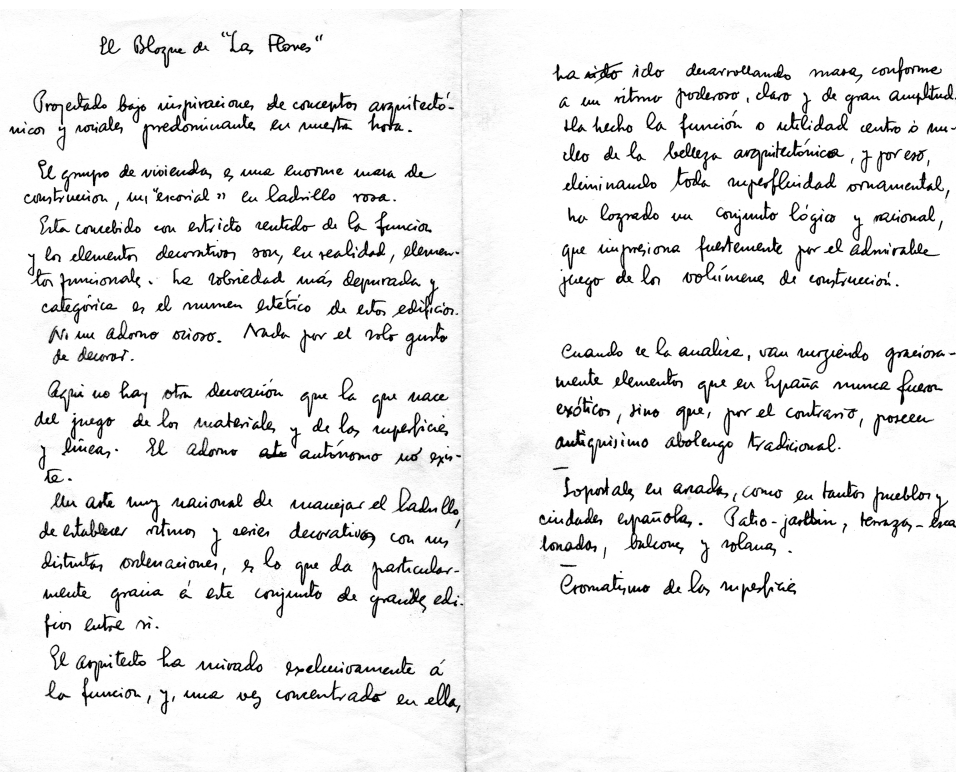 El Bloque de "Las Flores"
Proyectado bajo inspiraciones de conceptos arquitectó-
nicos y sociales predominantes en nuestra hora.
El grupo de viviendas es una enorme masa de
construccion, un "escorial" en ladrillo rosa.
Esta concebido con estricto sentido de la funcion
y los elementos decorativos son, en realidad, elemen-
tos funcionales. La sobriedad más depurada y
categórica es el numen estético de estos edificios.
Ni un adorno ocioso. Nada por el solo gusto
de decorar.
Aqui no hay otra decoración que la que nace
del juego de los materiales y de las superficies
y líneas. El adorno autónomo no exis-
te.
Un arte muy racional de manejar el ladrillo,
de establecer ritmos y series decorativas con sus
distintas ordenaciones, es lo que da particular-
mente gracia á este conjunto de grandes edi-
ficios entre si.
El arquitecto ha mirado exclusivamente á
la funcion, y, una vez concentrado en ella,
ha sido ido desarrollando masas conforme
a un ritmo poderoso, claro y de gran amplitud.
Ha hecho la función o utilidad centro ó nu-
cleo de la belleza arquitectónica, y por eso,
eliminando toda superfluidad ornamental,
ha logrado un conjunto lógico y racional,
que impresiona fuertemente por el admirable
juego de los volúmenes de construcción.
Cuando se la analiza, van surgiendo graciosa-
mente elementos que en España nunca fueron
exóticos, sino que, por el contrario, poseen
antiquisimo abolengo tradicional.
Soportales en arcadas, como en tantos pueblos y
ciudades españolas. Patio-jardin, terrazas-esca
lonadas, balcones y solanas.
Cromatismo de las superficies